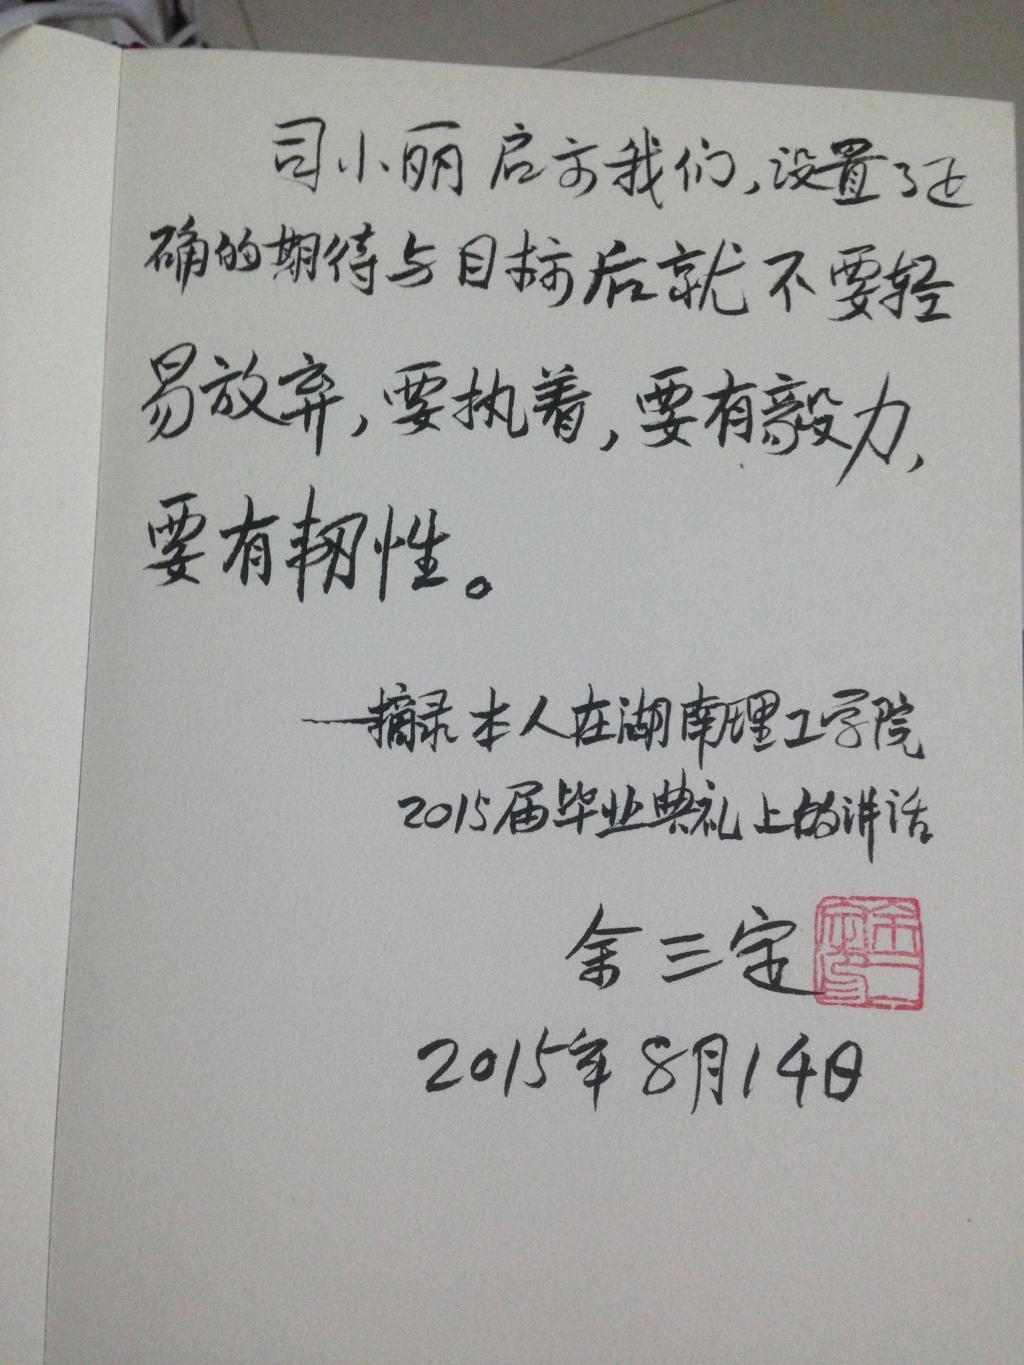 司小丽启示我们，设置了正
确的期待与目标后就不要轻
易放弃，要执着，要有毅力，
要有韧性。
——摘录本人在湖南理工学院
2015届毕业典礼上的讲话
余三定
2015年8月14日